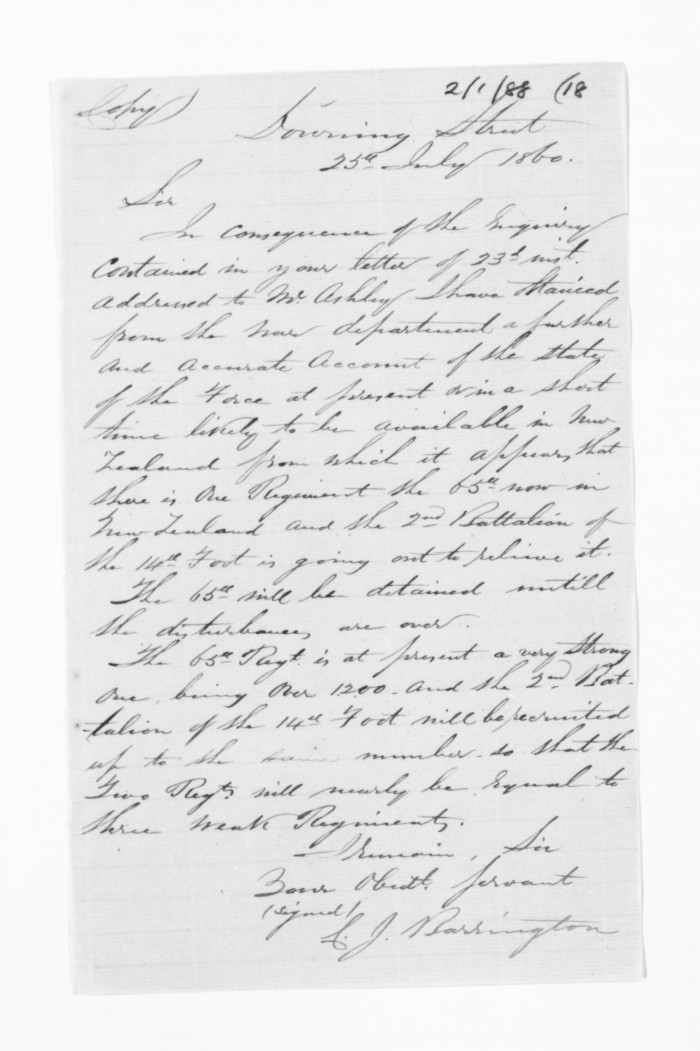 Copy)
2/1/88 (18
Downing Street
25th July 1860.
Sir
In consequence of the Enquiry
contained in your letter of 23d inst.
addressed to Mr. Ashley I have obtained
from the War department a further
and accurate Account of the state
of the Force at present or in a short
time likely to be available in New
Zealand from which it appears, that
there is one Regiment the 65th now in
New Zealand and the 2nd Battalion of
the 14th Foot is going out to relieve it.
The 65th will be detained untill
the disturbances are over.
The 65th Regt. is at present a very strong
one, being over 1200 - and the 2nd Bat-
-talion of the 14th Foot will be recruited
up to the same number - so that the
Two Regts will nearly be Equal to
three weak Regiments.
I remain, Sir
Your Obedt. Servant
(signed)
C. J. Barrington